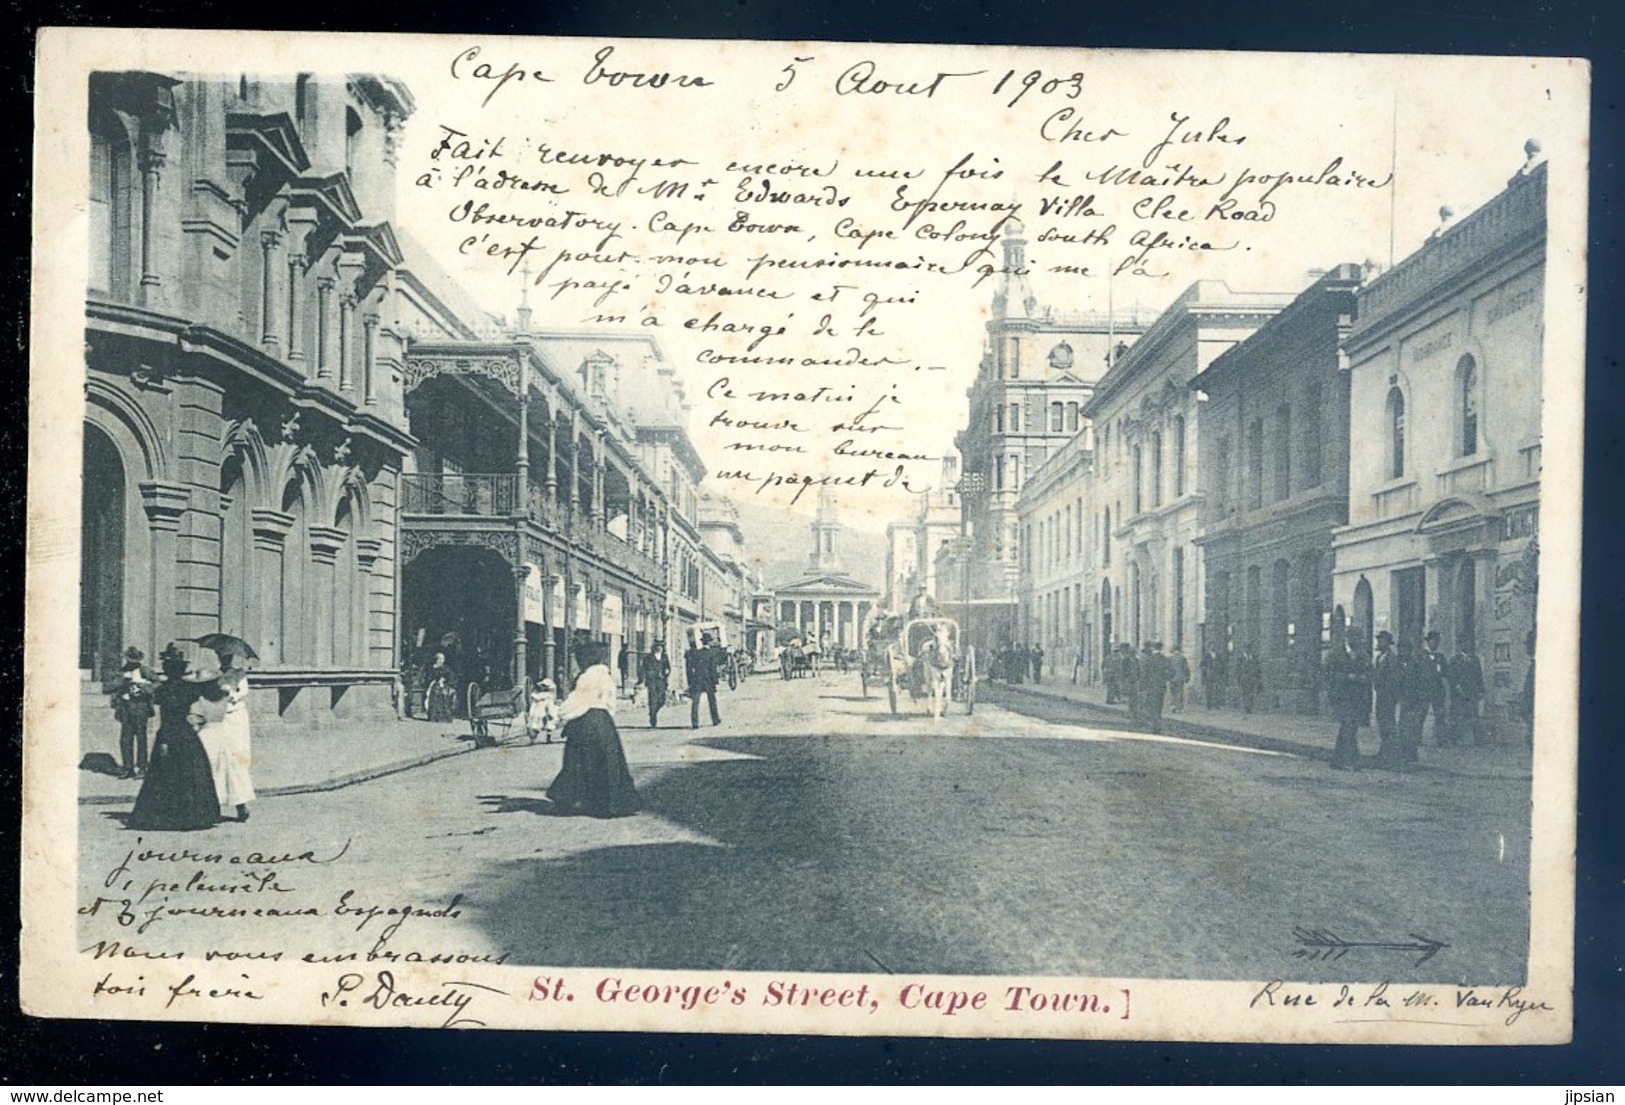 Cape Town 5 Aout 1903
Cher Jules
Fait renvoyer encore une fois le Maître populaire
à l'adresse de Mr Edwards Epernay Villa Clee Road
Observatory. Cape Town, Cape Colony South Africa.
c'est pour mon pensionnaire qui me l'a
payé d'avance et qui
m'a chargé de le
commander. —
Ce matin je
trouve sur
mon bureau
un paquet de
journeaux
pelemêle
et 3 journeaux Espagnols
Nous vous embrassons
ton frère P. Dauty
St. George's Street, Cape Town.]
Rue de la M. Van Ryn
delcampe.net
jipsian